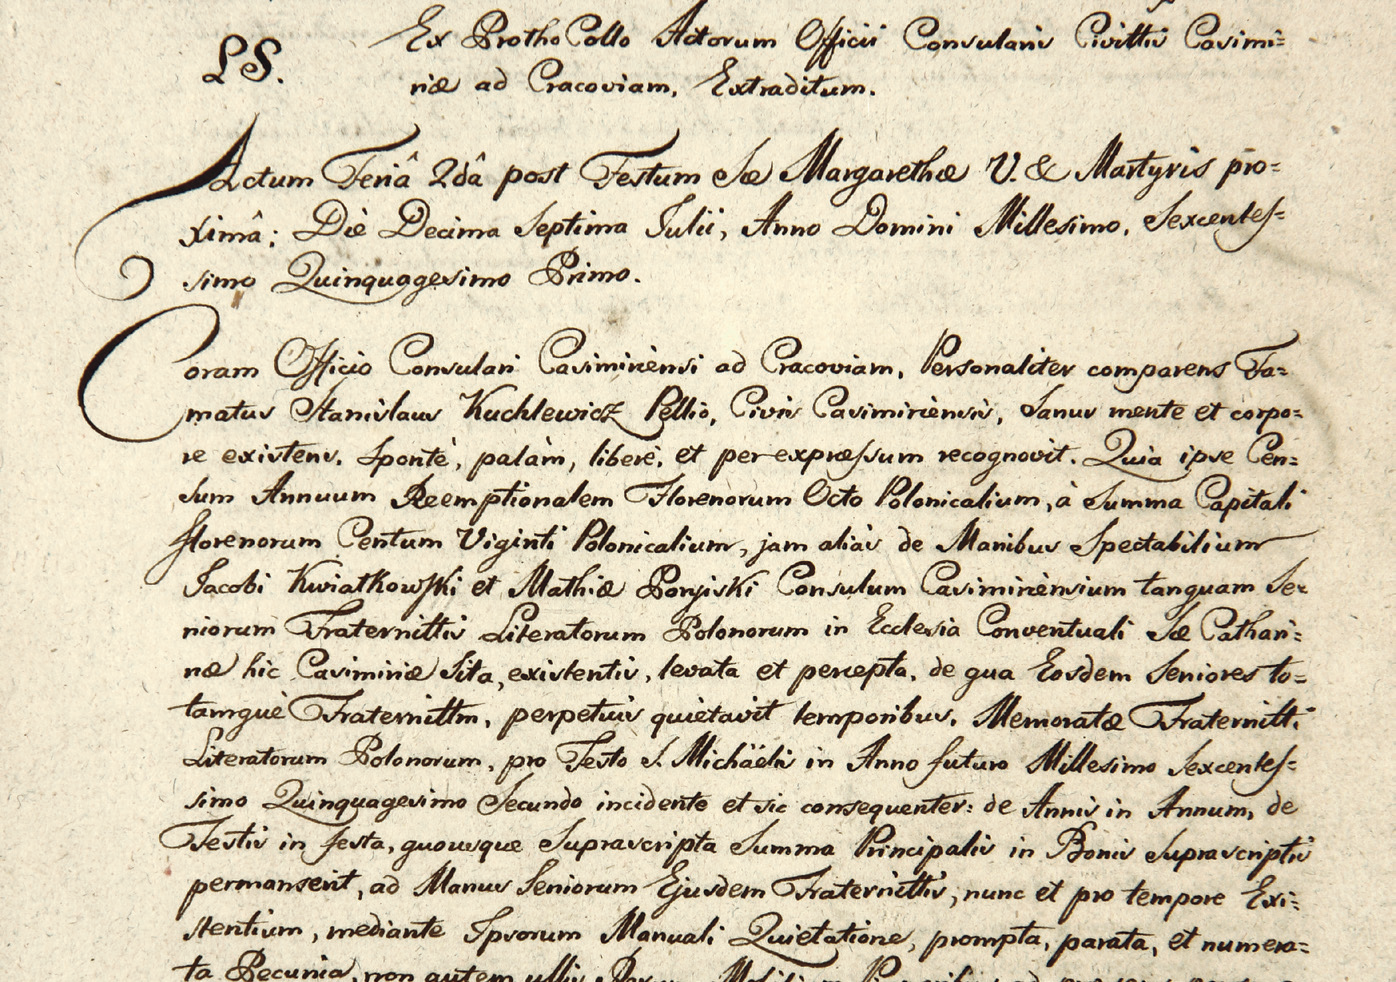 Ex ProthoCollo Actorum Officii Consularis Civittis Casimi=
LS.
riæ ad Cracoviam, Extraditum.
Actum Feriâ 2dâ post Festum Sæ Margarethæ V. & Martyris pro=
ximâ; Diè Decima Septima Iulii, Anno Domini Millesimo, Sexcentes=
simo Quinquagesimo Primo.
Coram Officio Consulari Casimiriensi ad Cracoviam, Personaliter comparens Fa=
matus Stanislaus Kuchlewicz Pellio, Civis Casimiriensis, Sanus mente et corpo=
re existens, Sponte, palàm, liberè, et per expræssum recognovit. Quia ipse Cen=
sum Annuum Reemptionalem Florenorum Octo Polonicalium, à Summa Capitali
florenorum Centum Viginti Polonicalium, jam alias de Manibus Spectabilium
Jacobi Kwiatkowski et Mathiæ Consulum Casimiriensium tanquam Se=
niorum Fraternittis Literatorum Polonorum in Ecclesia Conventuali Sæ Cathari=
næ hic Casimiriæ Sita, existentis, levata et percepta, de qua Eosdem Seniores to=
tamquè Fraternittm, perpetuis quietavit temporibus, Memoratæ Fraternitti
Literatorum Polonorum, pro Festo S. Michäelis in Anno futuro Millesimo Sexcentes=
simo Quinquagesimo Secundo incidente et sic consequenter: de Annis in Annum, de
Festis in festa, quousque Suprascripta Summa Principalis in Bonis Suprascriptis
permanserit, ad Manus Seniorum Ejusdem Fraternittis, nunc et pro tempore Exi=
stentium, mediante Ipsorum Manuali Quietatione, prompta, parata, et numera=
ta Pecunia, non autem ullis